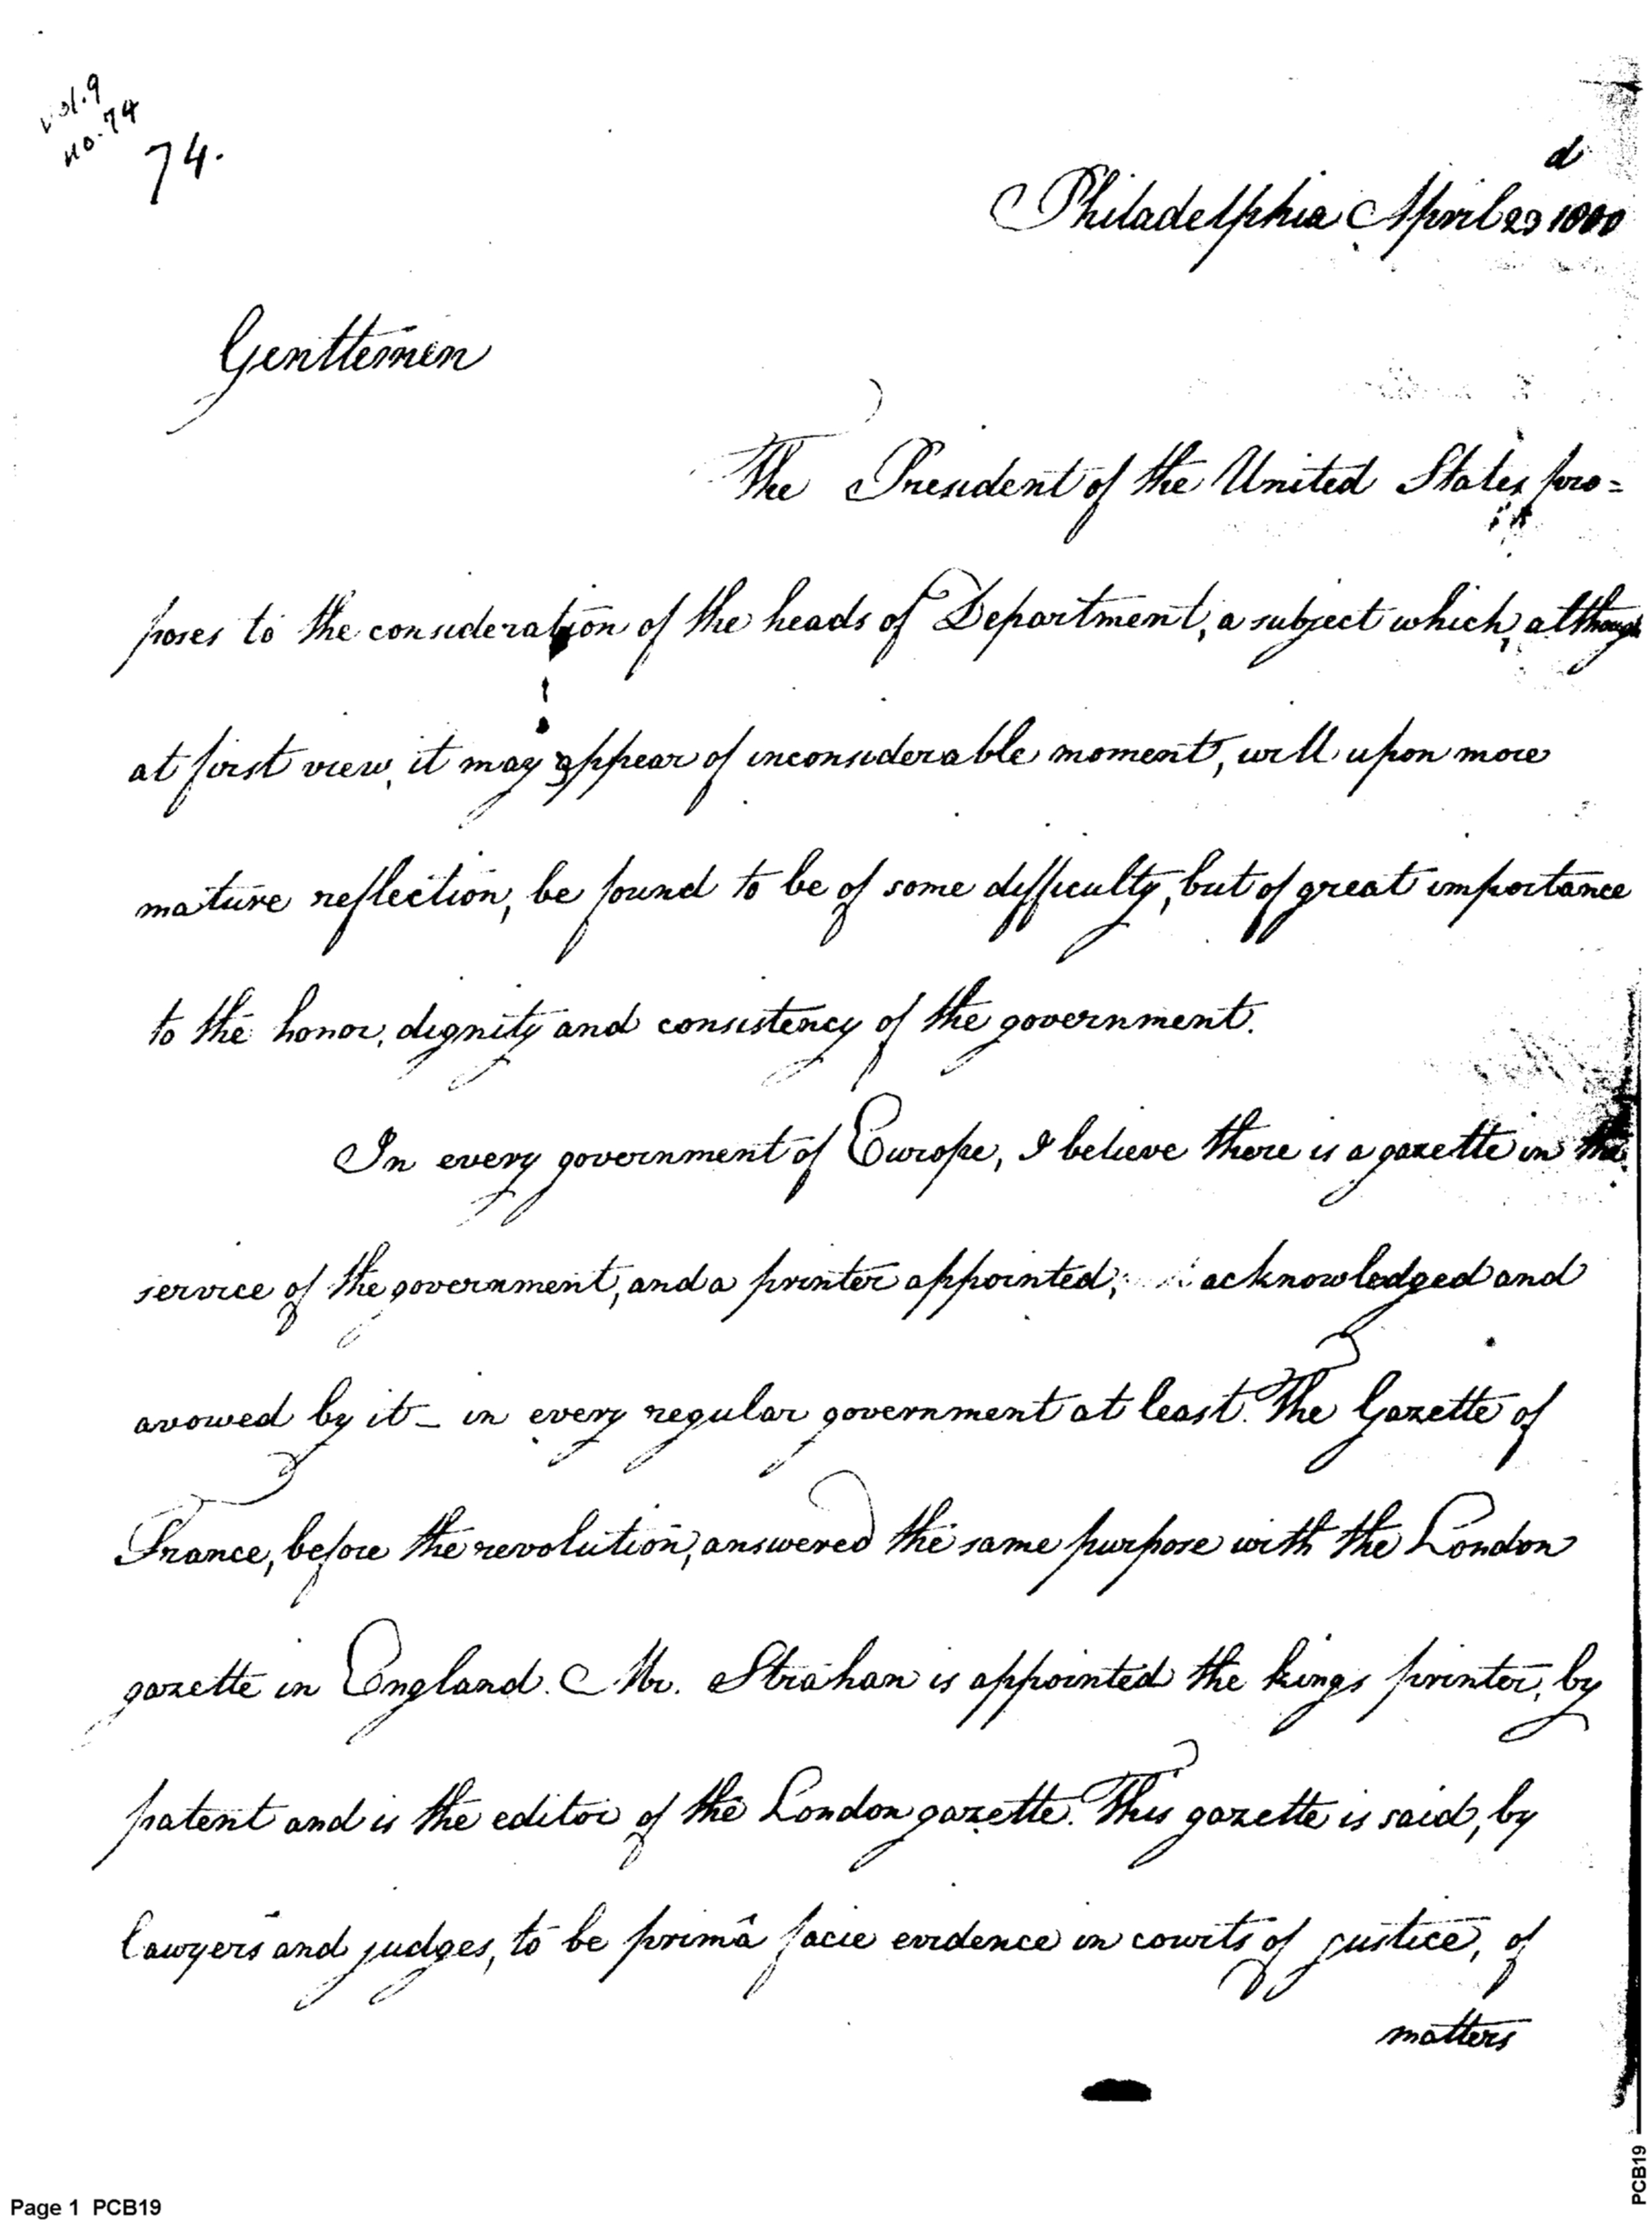 vol. 9
no. 74
74.
Philadelphia April 23d 1800
Gentlemen
The President of the United States pro=
poses to the consideration of the heads of Department, a subject which, although
at first view, it may appear of inconsiderable moment, will upon more
mature reflection, be found to be of some difficulty, but of great importance
to the honor, dignity and consistency of the government.
In every government of Europe, I believe there is a gazette in the
service of the government, and a printer appointed, acknowledged and
avowed by it — in every regular government at least. The Gazette of
France, before the revolution, answered the same purpose with the London
gazette in England. Mr. Strahan is appointed the kings printer, by
patent and is the editor of the London gazette. This gazette is said, by
lawyers and judges, to be primâ facie evidence in courts of justice, of
matters
Page 1 PCB19
PCB19